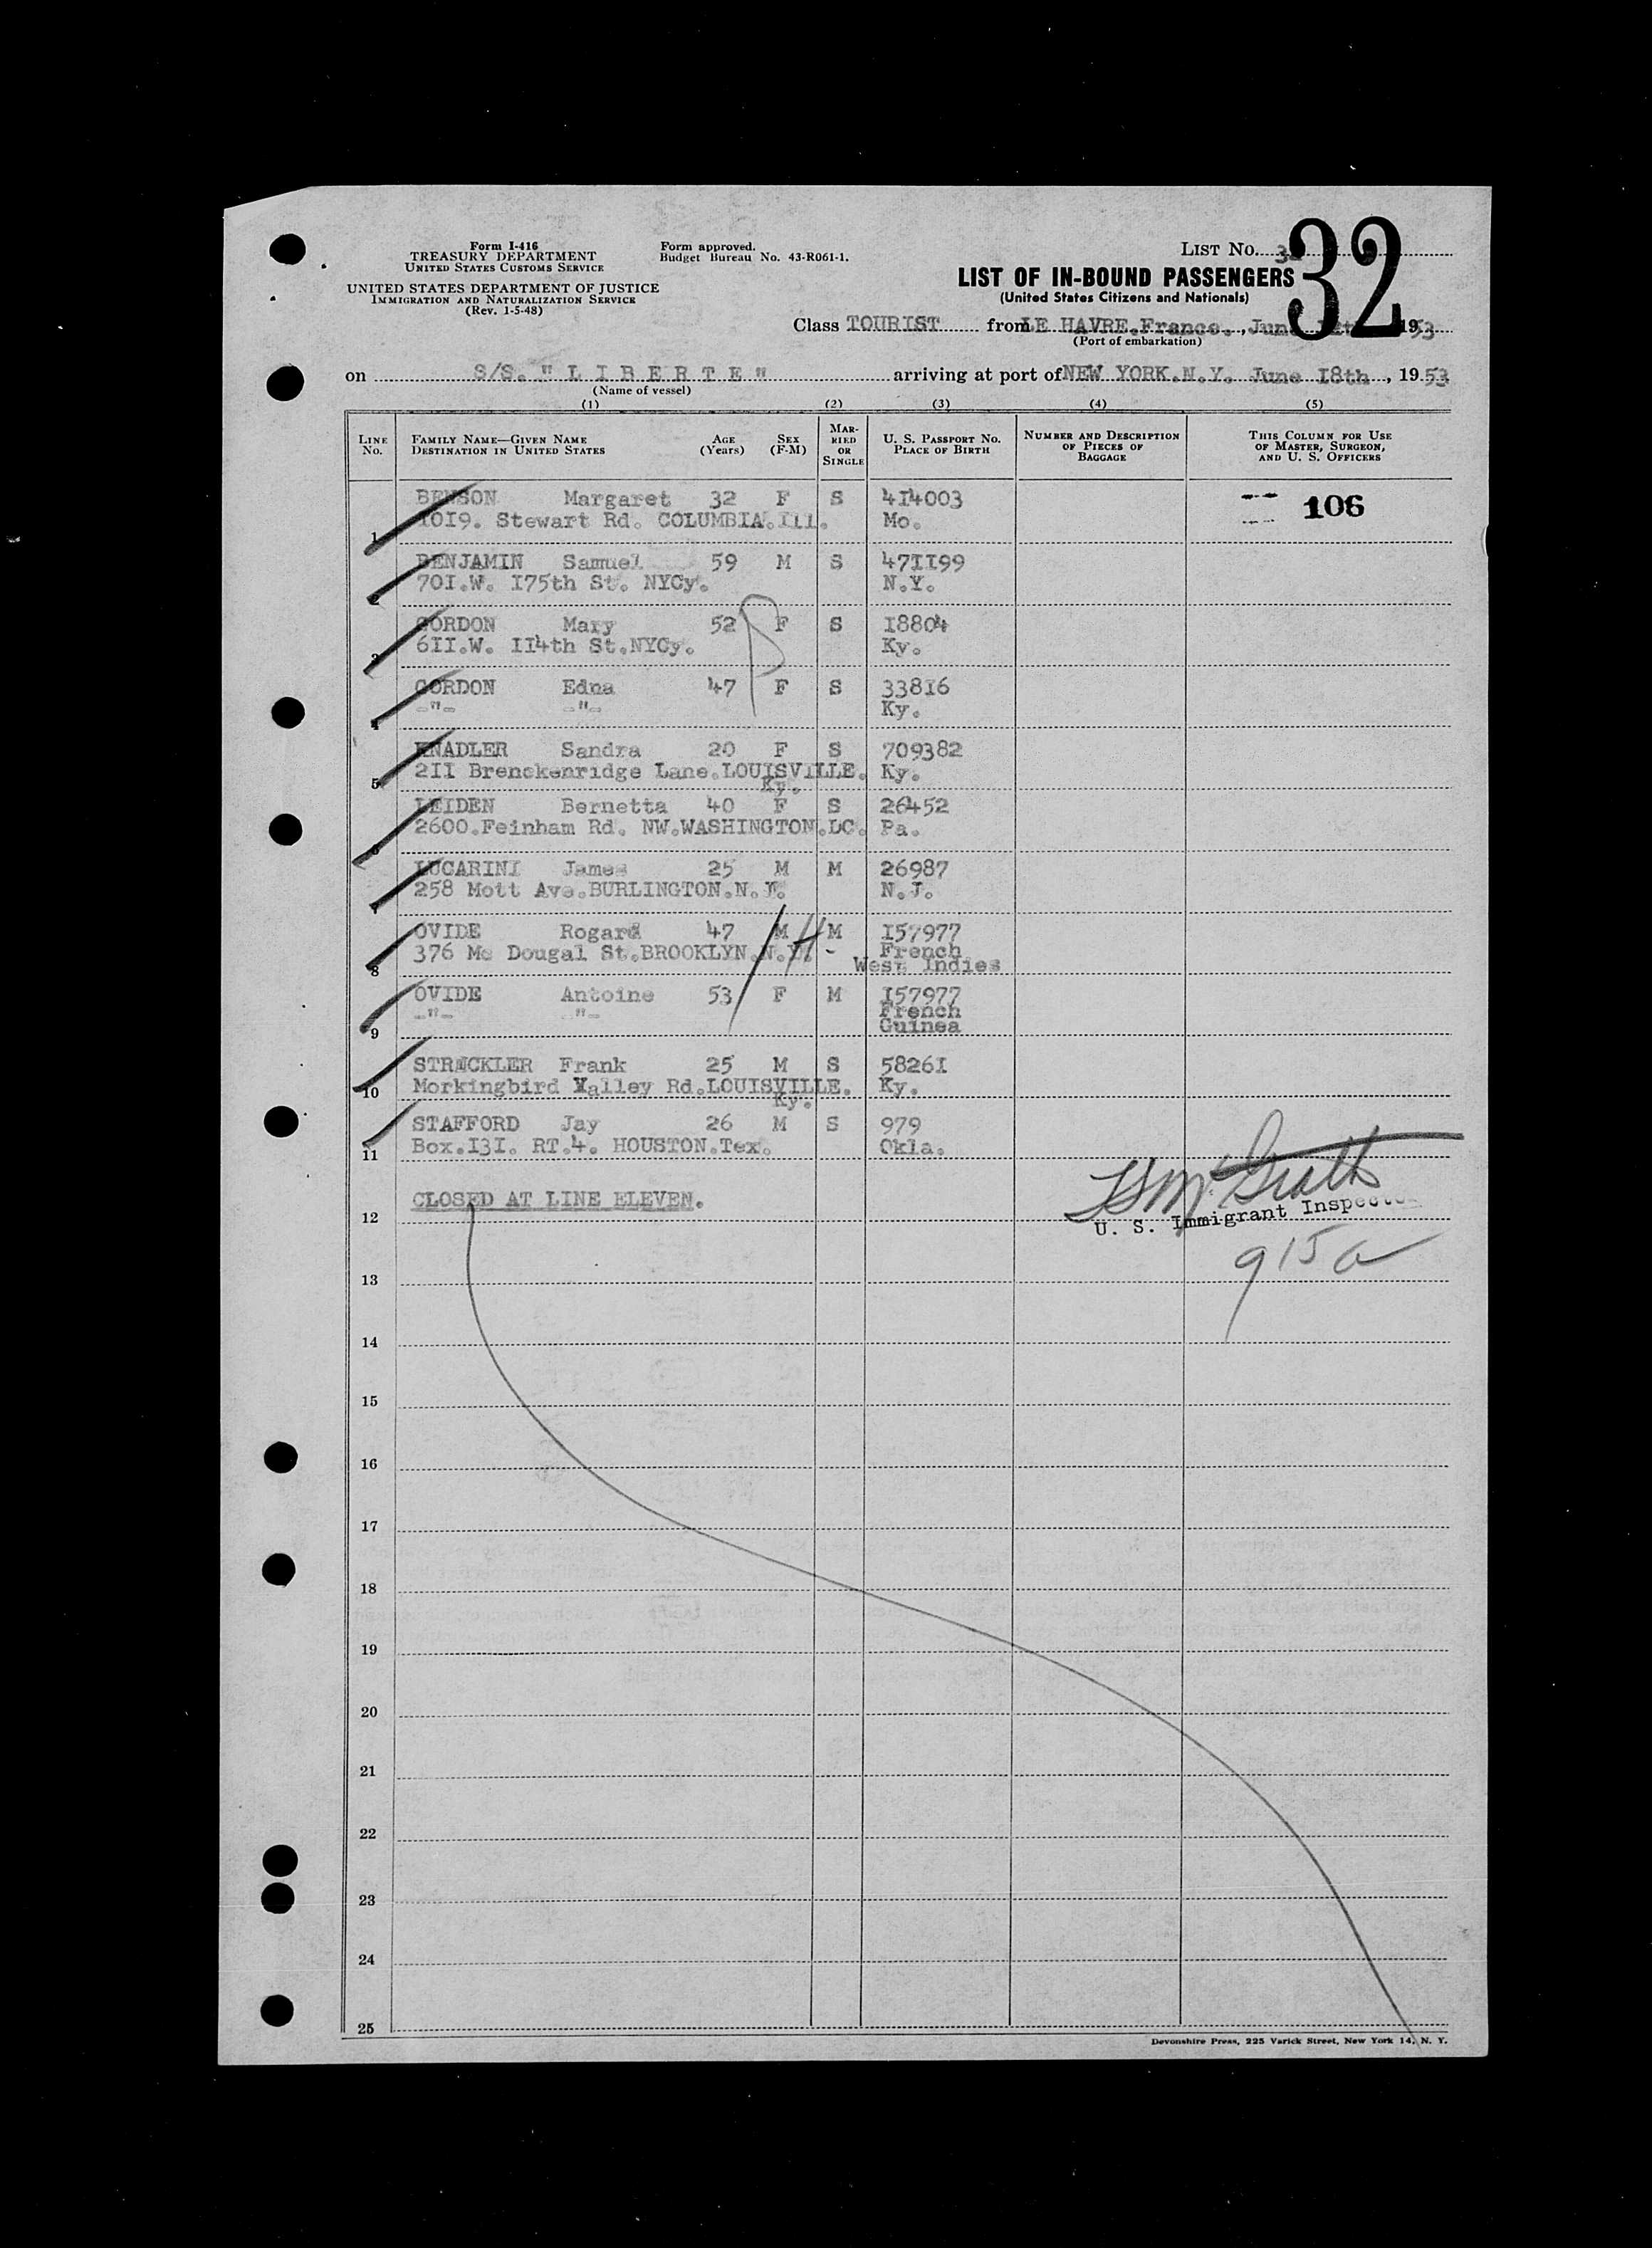 Form I-416
TREASURY DEPARTMENT
UNITED STATES CUSTOMS SERVICE
UNITED STATES DEPARTMENT OF JUSTICE
IMMIGRATION AND NATURALIZATION SERVICE
(Rev. 1-5-48)
Form approved.
Budget Bureau No. 43-R061-1.
LIST No. 32
32
LIST OF IN-BOUND PASSENGERS
(United States Citizens and Nationals)
Class TOURIST from LE HAVRE.France. , June 1953
(Port of embarkation)
on S/S. "L I B E R T E" arriving at port of NEW YORK.N.Y. June I8th , 1953
(Name of vessel)
(1) (2) (3) (4) (5)
LINE No. FAMILY NAME—GIVEN NAME DESTINATION IN UNITED STATES AGE (Years) SEX (F-M) MARRIED OR SINGLE U. S. PASSPORT No. PLACE OF BIRTH NUMBER AND DESCRIPTION OF PIECES OF BAGGAGE THIS COLUMN FOR USE OF MASTER, SURGEON, AND U. S. OFFICERS
BENSON Margaret 32 F S 4I4003 106
1 I0I9. Stewart Rd. COLUMBIA.Ill. Mo.
BENJAMIN Samuel 59 M S 47II99
2 70I.W. I75th St. NYCy. N.Y.
GORDON Mary 52 F S I8804
3 6II.W. II4th St.NYCy. Ky.
GORDON Edna 47 F S 338I6
4 -"- -"- Ky.
KNADLER Sandra 20 F S 709382
5 2II Brenckenridge Lane.LOUISVILLE. Ky.
Ky.
LEIDEN Bernetta 40 F S 26452
6 2600.Feinham Rd. NW.WASHINGTON.DC. Pa.
LUCARINI James 25 M M 26987
7 258 Mott Ave.BURLINGTON.N.J. N.J.
OVIDE Rogard 47 M M I57977
376 Mc Dougal St.BROOKLYN.N.Y. French
8 West Indies
OVIDE Antoine 53 F M I57977
-"- -"- French
9 Guinea
STRACKLER Frank 25 M S 5826I
10 Morkingbird Valley Rd.LOUISVILLE. Ky.
Ky.
STAFFORD Jay 26 M S 979
11 Box.I3I. RT.4. HOUSTON.Tex. Okla.
12 CLOSED AT LINE ELEVEN.
U. S. Immigrant Inspector
915a
13
14
15
16
17
18
19
20
21
22
23
24
25
Devonshire Press, 225 Varick Street, New York 14, N. Y.